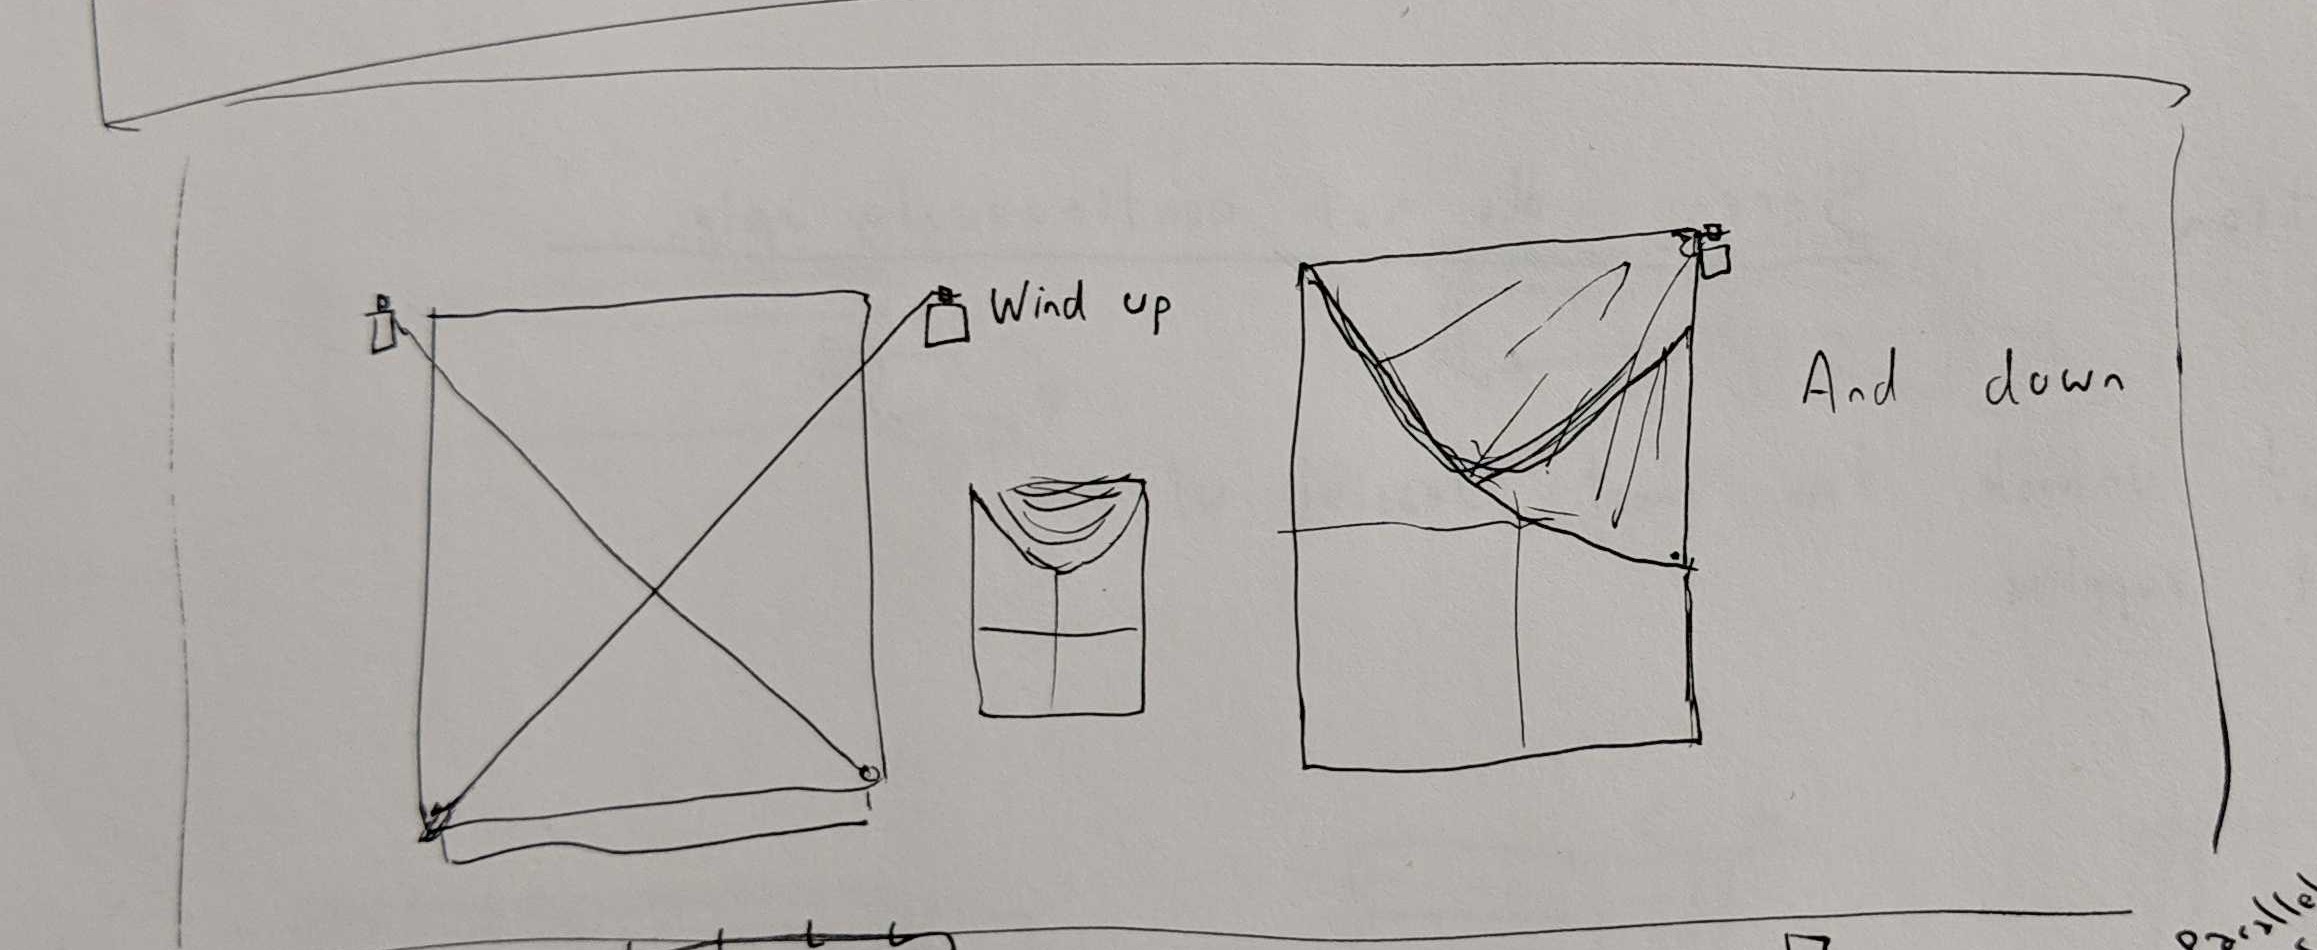 Wind up
And down
Parallel